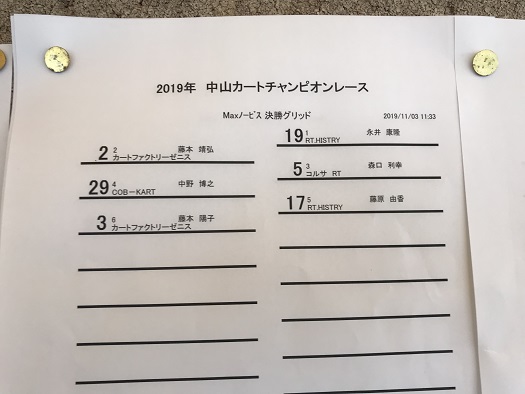 2019年 中山カートチャンピオンレース
Maxﾉｰﾋﾞｽ 決勝グリッド
2019/11/03 11:33
19 1 永井 康隆
RT.HISTRY
2 2 藤本 靖弘
カートファクトリーゼニス
5 3 森口 利幸
コルサ RT
29 4 中野 博之
COB－KART
17 5 藤原 由香
RT.HISTRY
3 6 藤本 陽子
カートファクトリーゼニス